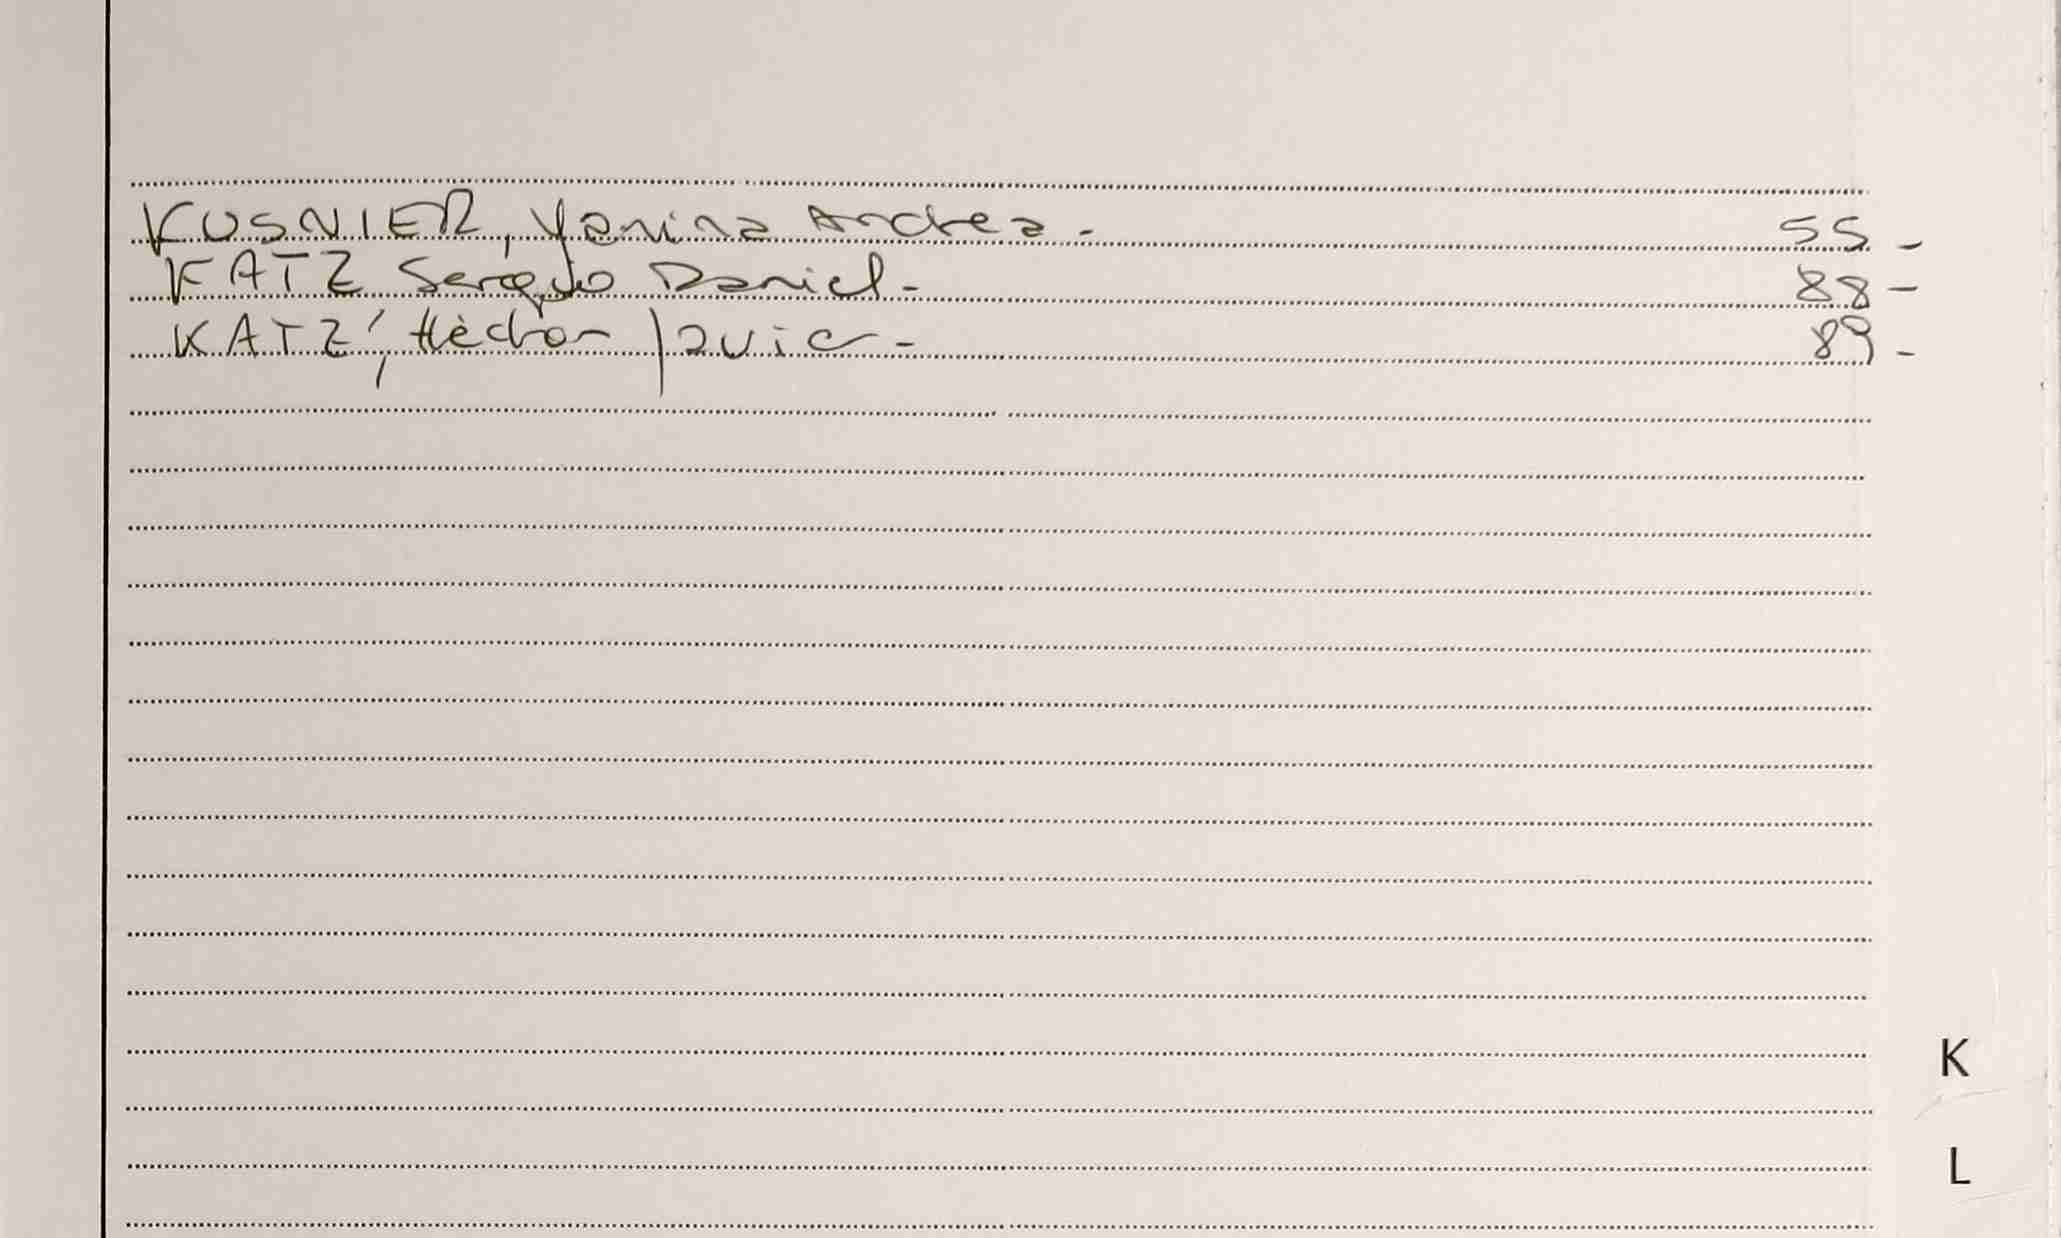 KUSNIER, Yanina Andrea. - 55 -
KATZ Sergio Daniel. - 88 -
KATZ, Héctor Javier - 89 -
K
L